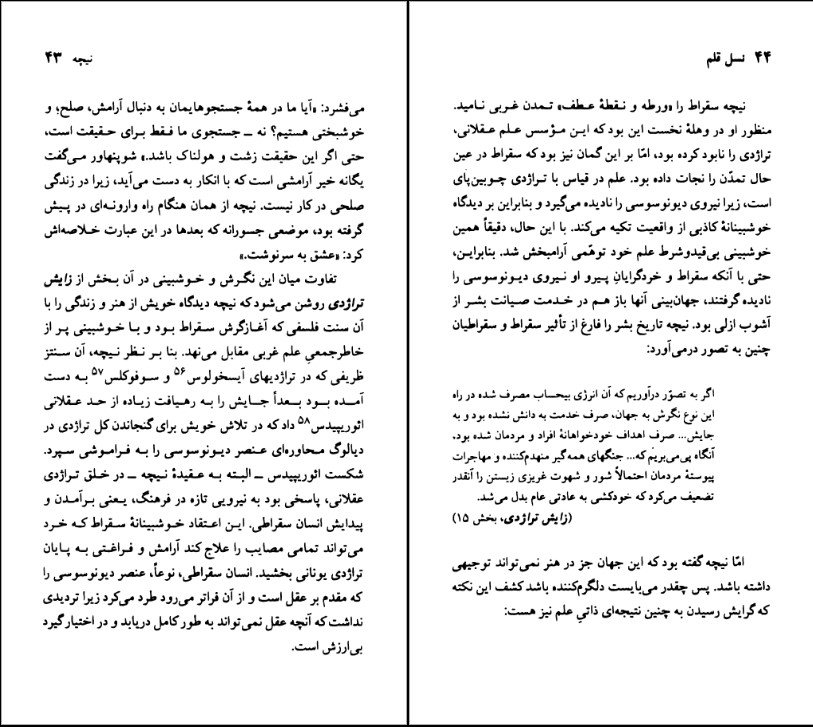 نیچه ۴۳
می‌فشرد: «آیا ما در همهٔ جستجوهایمان به دنبال آرامش، صلح؛ و
خوشبختی هستیم؟ نه ــ جستجوی ما فقط برای حقیقت است،
حتی اگر این حقیقت زشت و هولناک باشد.» شوپنهاور می‌گفت
یگانه خیر آرامشی است که با انکار به دست می‌آید، زیرا در زندگی
صلحی در کار نیست. نیچه از همان هنگام راه وارونه‌ای در پیش
گرفته بود، موضعی جسورانه که بعدها در این عبارت خلاصه‌اش
کرد: «عشق به سرنوشت.»
تفاوت میان این نگرش و خوشبینی در آن بخش از زایش
تراژدی روشن می‌شود که نیچه دیدگاه خویش از هنر و زندگی را با
آن سنت فلسفی که آغازگرش سقراط بود و با خوشبینی پر از
خاطرجمعیِ علم غربی مقابل می‌نهد. بنا بر نظر نیچه، آن سنتز
ظریفی که در تراژدیهای آیسخولوس۵۶ و سوفوکلس۵۷ به دست
آمده بود بعداً جایش را به رهیافت زیاده از حد عقلانی
ائوریپیدس۵۸ داد که در تلاش خویش برای گنجاندن کل تراژدی در
دیالوگ محاوره‌ای عنصر دیونوسوسی را به فراموشی سپرد.
شکست ائوریپیدس ــ البته به عقیدهٔ نیچه ــ در خلق تراژدی
عقلانی، پاسخی بود به نیرویی تازه در فرهنگ، یعنی برآمدن و
پیدایش انسان سقراطی. این اعتقاد خوشبینانهٔ سقراط که خرد
می‌تواند تمامی مصایب را علاج کند آرامش و فراغتی به پایان
تراژدی یونانی بخشید. انسان سقراطی، نوعاً، عنصر دیونوسوسی را
که مقدم بر عقل است و از آن فراتر می‌رود طرد می‌کرد زیرا تردیدی
نداشت که آنچه عقل نمی‌تواند به طور کامل دریابد و در اختیار گیرد
بی‌ارزش است.
۴۴ نسل قلم
نیچه سقراط را «ورطه و نقطهٔ عطف» تمدن غربی نامید.
منظور او در وهلهٔ نخست این بود که این مؤسس علم عقلانی،
تراژدی را نابود کرده بود، امّا بر این گمان نیز بود که سقراط در عین
حال تمدّن را نجات داده بود. علم در قیاس با تراژدی چوبین‌پای
است، زیرا نیروی دیونوسوسی را نادیده می‌گیرد و بنابراین بر دیدگاه
خوشبینانهٔ کاذبی از واقعیت تکیه می‌کند. با این حال، دقیقاً همین
خوشبینی بی‌قیدوشرط علم خود توهّمی آرامبخش شد. بنابراین،
حتی با آنکه سقراط و خردگرایانِ پیرو او نیروی دیونوسوسی را
نادیده گرفتند، جهان‌بینی آنها باز هم در خدمت صیانت بشر از
آشوب ازلی بود. نیچه تاریخ بشر را فارغ از تأثیر سقراط و سقراطیان
چنین به تصور درمی‌آورد:
اگر به تصوّر درآوریم که آن انرژی بیحساب مصرف شده در راه
این نوع نگرش به جهان، صرف خدمت به دانش نشده بود و به
جایش... صرف اهداف خودخواهانهٔ افراد و مردمان شده بود،
آنگاه پی‌می‌بریم که... جنگهای همه‌گیر منهدم‌کننده و مهاجرات
پیوستهٔ مردمان احتمالاً شور و شهوت غریزی زیستن را آنقدر
تضعیف می‌کرد که خودکشی به عادتی عام بدل می‌شد.
(زایش تراژدی، بخش ۱۵)
امّا نیچه گفته بود که این جهان جز در هنر نمی‌تواند توجیهی
داشته باشد. پس چقدر می‌بایست دلگرم‌کننده باشد کشف این نکته
که گرایش رسیدن به چنین نتیجه‌ای ذاتیِ علم نیز هست: